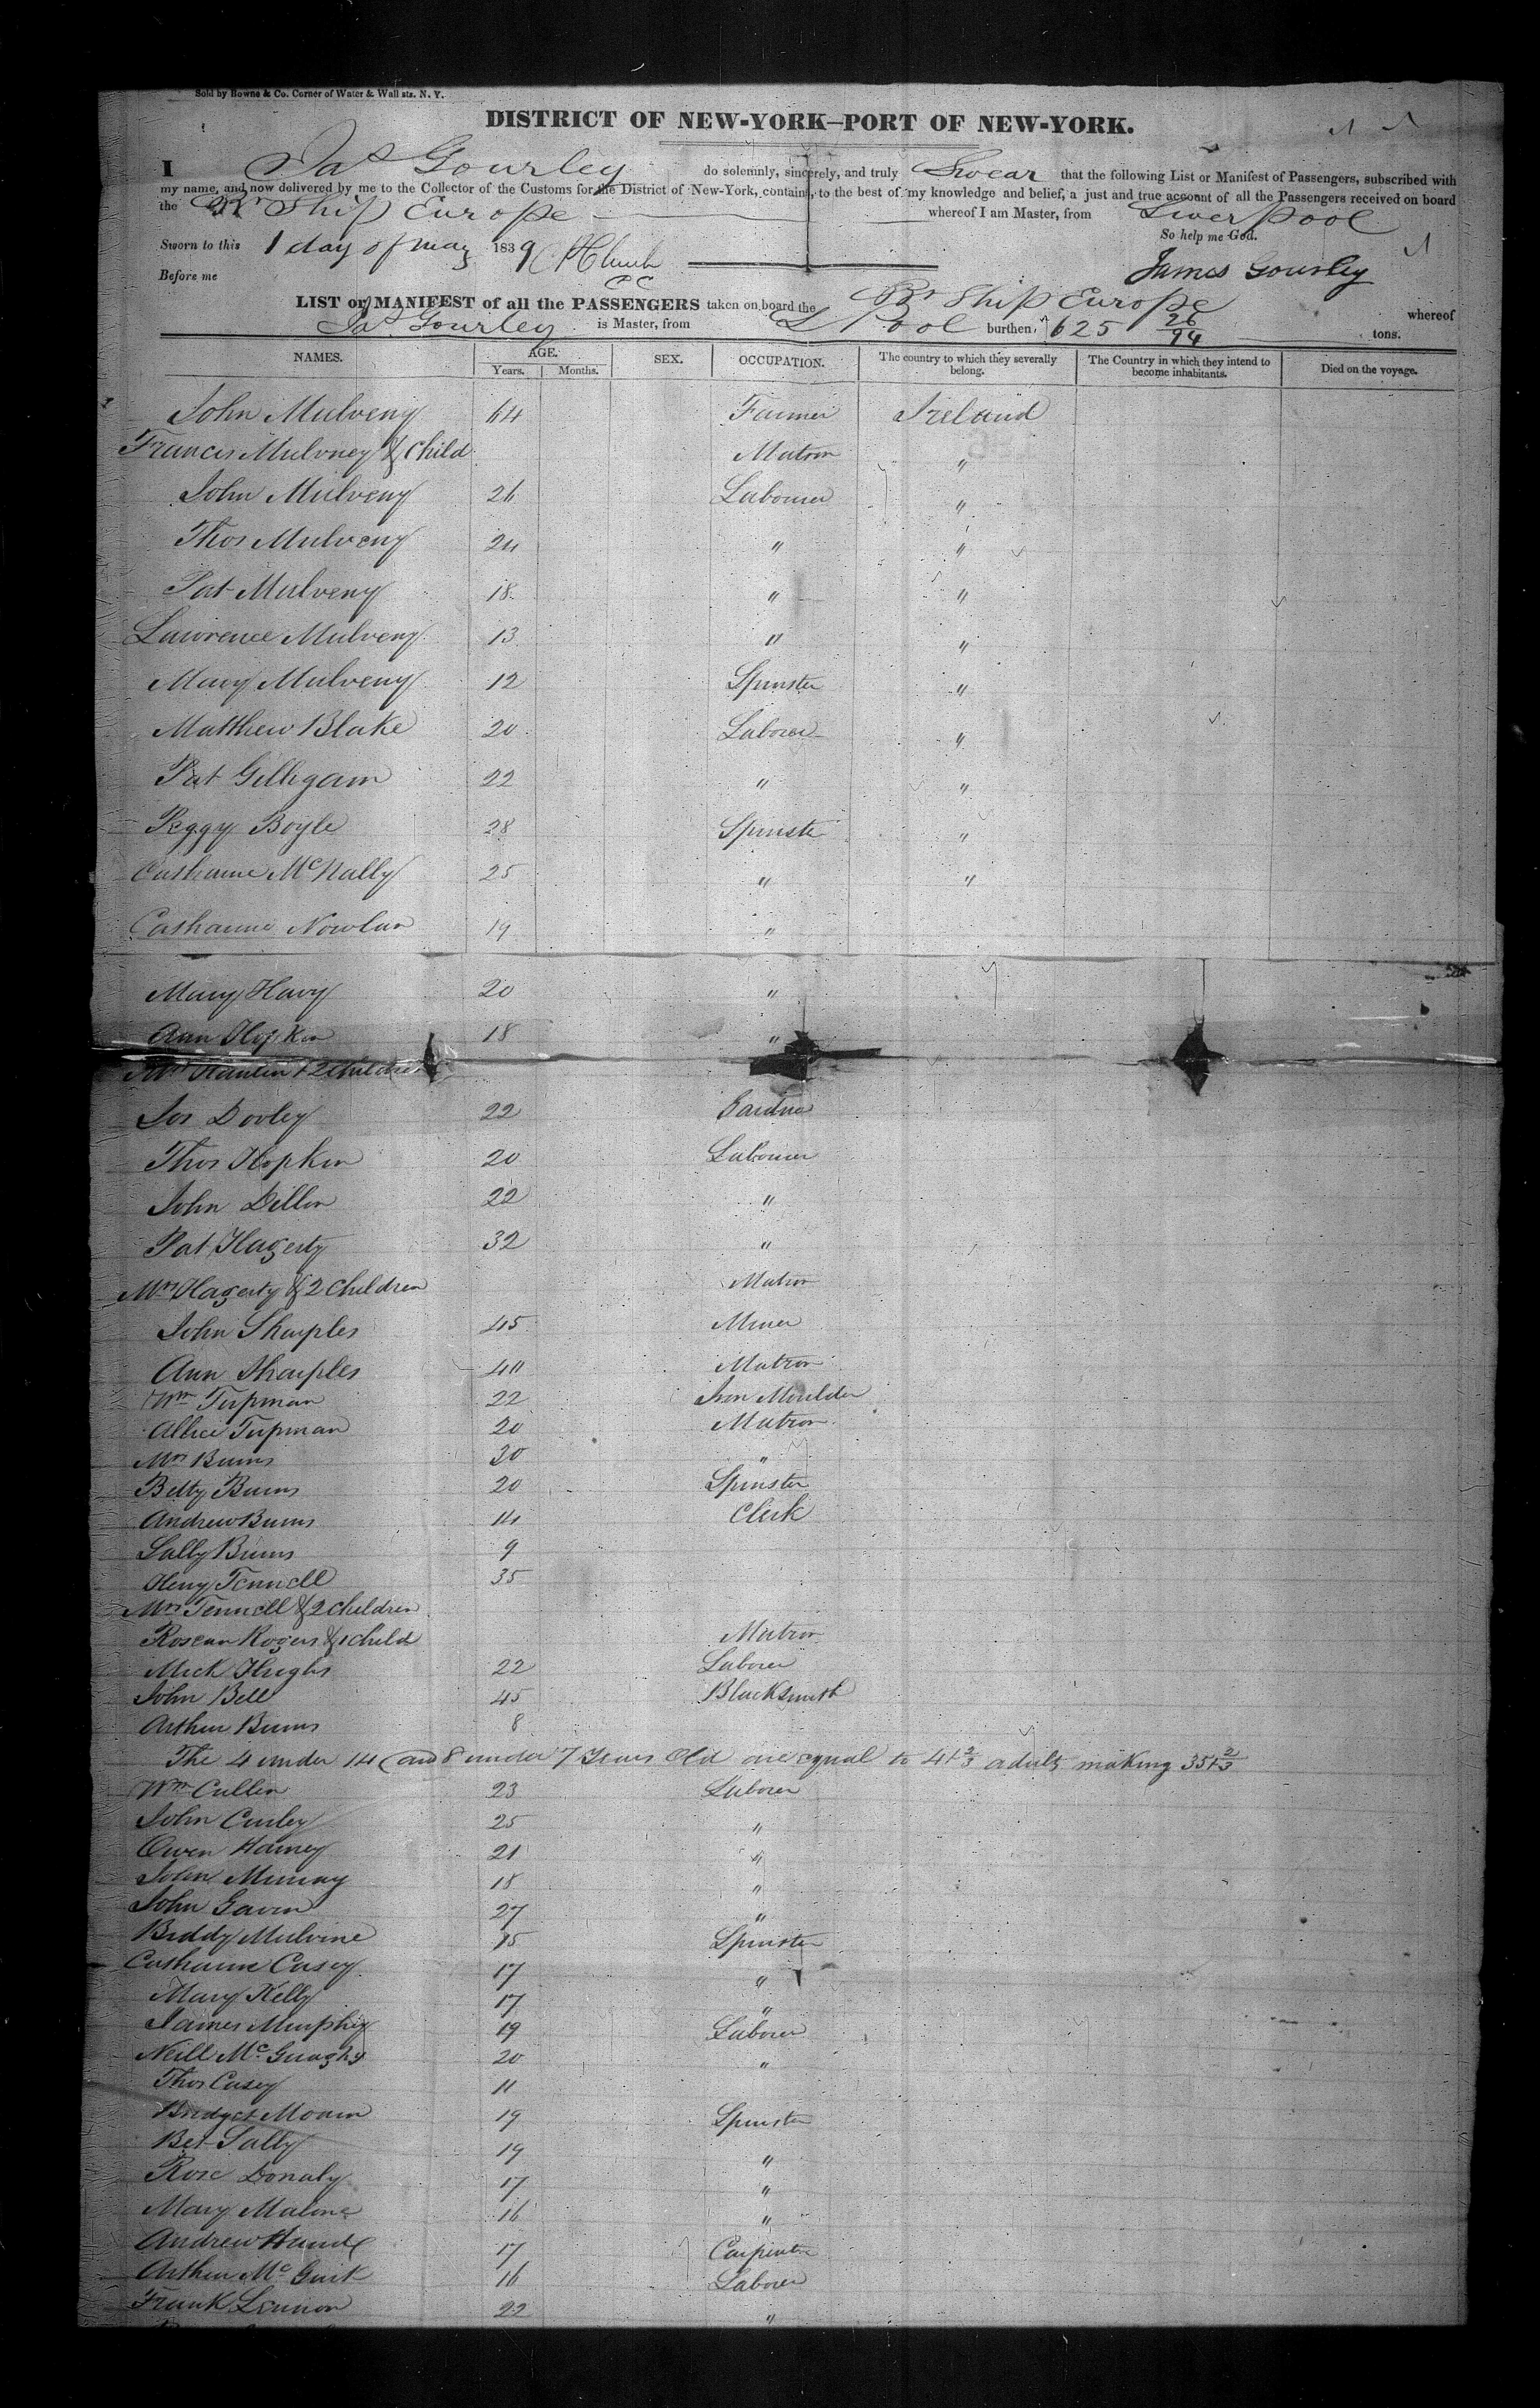 Sold by Bowne & Co. Corner of Water & Wall sts. N. Y.
DISTRICT OF NEW-YORK—PORT OF NEW-YORK.
I Jas Gourley do solemnly, sincerely, and truly Swear that the following List or Manifest of Passengers, subscribed with
my name, and now delivered by me to the Collector of the Customs for the District of New-York, contains, to the best of my knowledge and belief, a just and true account of all the Passengers received on board
the Br Ship Europe whereof I am Master, from Liverpool
So help me God.
Sworn to this 1 day of may 1839
Before me James Gourley
LIST or MANIFEST of all the PASSENGERS taken on board the Br Ship Europe whereof
Jas Gourley is Master, from L Pool burthen 625 26/94 tons.
NAMES. AGE. SEX. OCCUPATION. The country to which they severally belong. The Country in which they intend to become inhabitants. Died on the voyage.
Years. Months.
John Mulveny 64 Farmer Ireland
Frances Mulvney & Child Matron "
John Mulveny 26 Labourer "
Thos Mulveny 24 " "
Pat Mulveny 18 " "
Lawrence Mulveny 13 " "
Mary Mulveny 12 Spinster "
Matthew Blake 20 Laborer "
Pat Gillegam 22 " "
Peggy Boyle 28 Spinste "
Catharine McNally 25 " "
Catharine Nowlan 19 "
Mary Havy 20 "
Ann Hopkin 18 "
Mrs Hanlin + 2 Children
Jos Dooley 22 Gardner
Thos Hopkin 20 Labourer
John Dillon 22 "
Pat Hagerty 32 "
Mrs Hagerty & 2 Children Matron
John Sharples 45 Miner
Ann Sharples 40 Matron
Wm Tupman 22 Iron Moulder
Allice Tupman 20 Matron
Mrs Burns 30 "
Betty Burns 20 Spinster
Andrew Burns 14 Clerk
Sally Burns 9
Heny Fennell 35
Mrs Fennell & 2 Children
Rosean Rogers & 1 Child Matron
Mick Hughs 22 Laborer
John Bell 45 Blacksmith
Arthur Burns 8
The 4 under 14 and 8 under 7 Years Old are equal to 4+2/3 adults making 35+2/3
Wm Cullen 23 Laborer
John Curley 25 "
Owen Harney 21 "
John Murray 18 "
John Gaven 27 "
Biddy Mulvine 15 Spinster
Catharine Casey 17 "
Mary Kelly 17 "
James Murphy 19 Laborer
Neill McGuaghy 20 "
Thos Casey 11
Bridget Moann 19 Spinster
Bet Sally 19 "
Rose Donaly 17 "
Mary Malone 16 "
Andrew Hand 17 Carpenter
Arthur McGuirk 16 Laborer
Frank Lennon 22 "